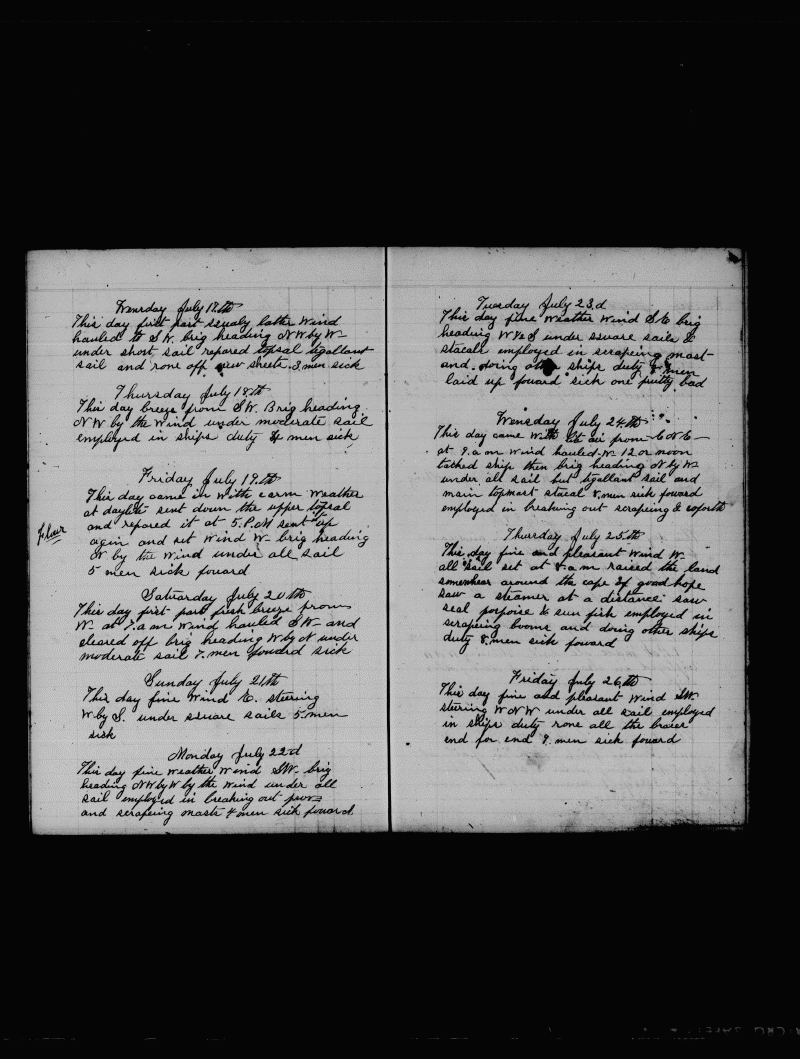 Wensday July 17.th
This day first part squaly latter wind
hauled to S.W. brig heading N W by W
under short sail repared topsal tgallant
sail and rove off new sheets. 3 men sick
Thursday July 18.th
This day breeze from S.W. Brig heading
N W by the wind under moderate sail
employed in ships duty 4 men sick
Friday July 19.th
This day came in with carm weather
at daylet sent down the upper topsal
and repared it at 5.P.M sent up
agin and set wind W brig heading
N by the wind under all sail
5 men sick foward
Saturday July 20th
This day first part fresh breeze from
W. at 7.a.m. wind hauled S W and
cleared off brig heading W by N under
moderate sail 7. men foward sick
Sunday July 21.th
This day fine wind E. steering
W by S. under square sails 5 men
sick
Monday July 22d
This day fine weather wind S.W. brig
heading N W by W by the wind under all
sail employed in breaking out
and scrapeing masts 7 men sick foward
Tuesday July 23.d
This day fine weather wind S E brig
heading under square sails &
stacals employed in scrapeing mast
and doing other ships duty 8 men
laid up foward sick one pretty bad
Wensday July 24.th
This day came with let air from E N E
at 9.a.m wind hauled W 12 or noon
tacked ship then brig heading N by W
under all sail but tgallant sail and
main topmast stacal 8.men sick foward
employed in breaking out scrapeing & soforth
Thursday July 25.th
This day fine and pleasant wind W
all sail set at 8 a m raised the land
somewhear around the cape of good hope
saw a steamer at a distance saw
seal porpoise & sun fish employed in
scrapeing booms and doing other ships
duty 8. men sick foward
Friday July 26.th
This day fine and pleasant wind S.W.
steering W N W under all sail employed
in ships duty rove all the braces
end for end 9. men sick foward